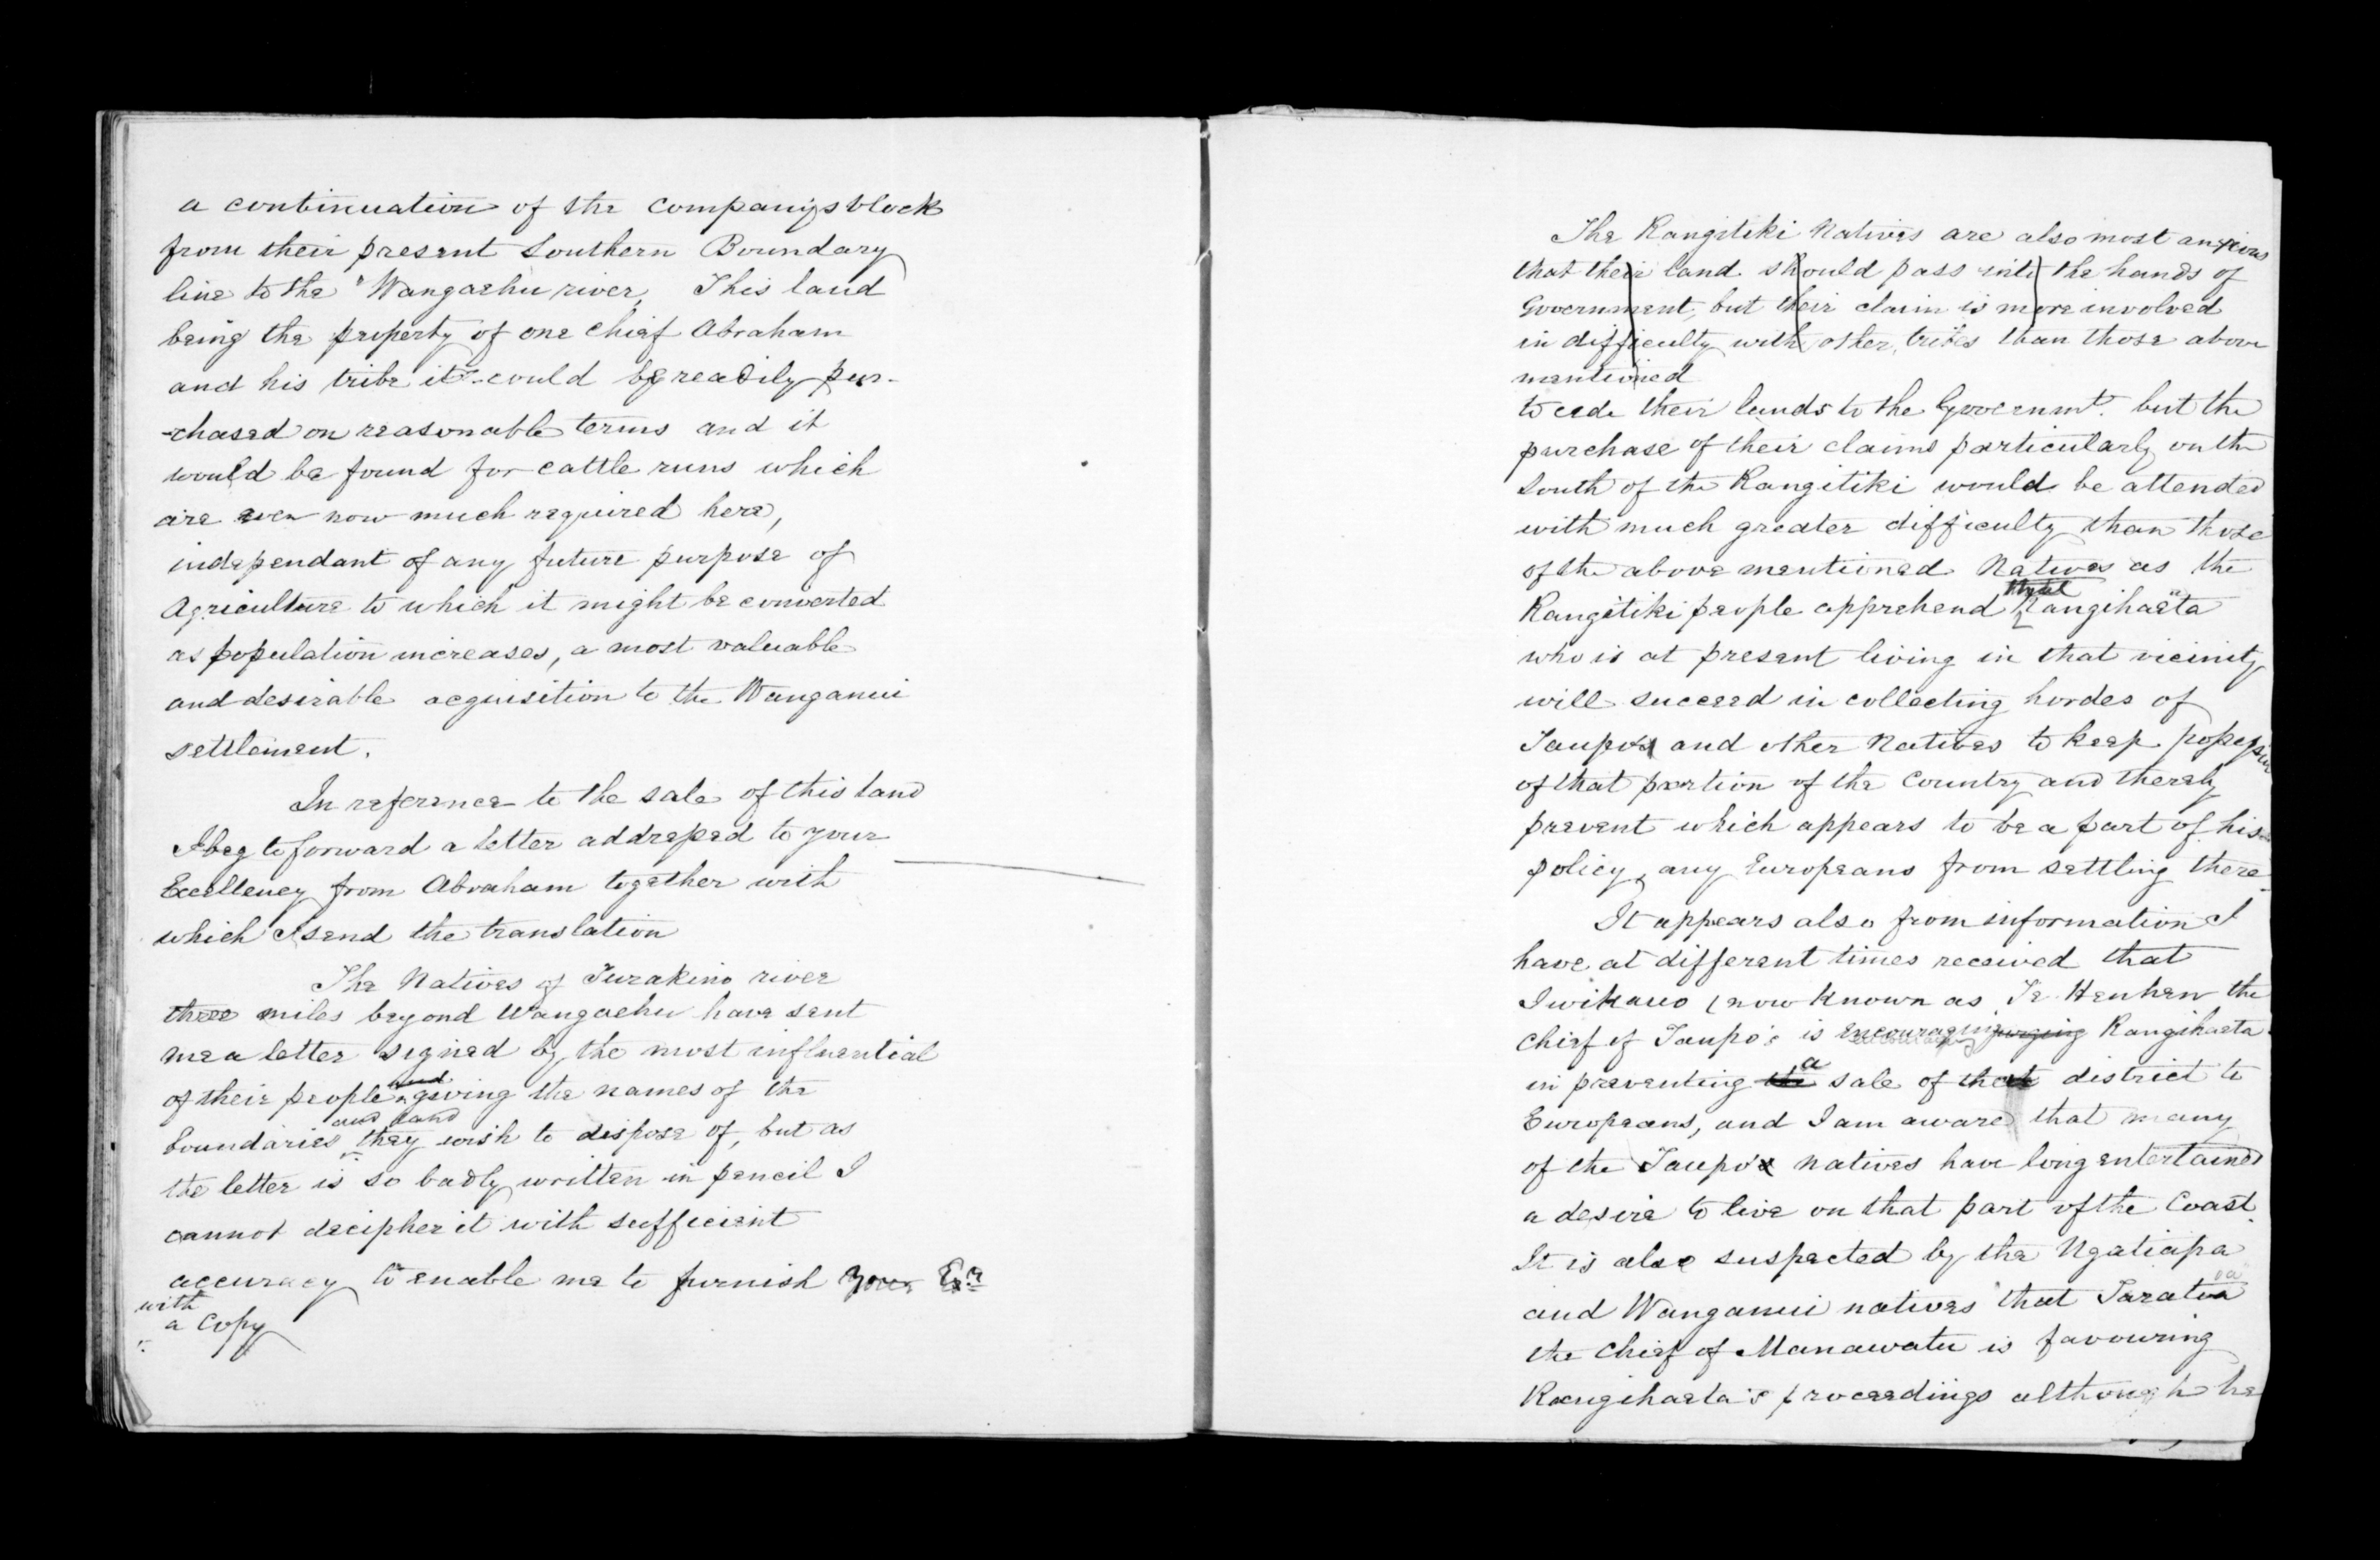 a continuation of the companys block
from their present Southern Boundary
line to the "Wangaehu river, This land
being the property of one chief Abraham
and his tribe it could be readily pur-
-chased on reasonable terms and it
would be found for cattle runs which
are even now much required here,
independant of any future purpose of
Agriculture to which it might be converted
as population increases, a most valuable
and desirable acquisition to the Wanganui
settlement.
In reference to the sale of this land
I beg to forward a letter addressed to your
Excellency from Abraham together with
which I send the translation
The Natives of Turakino river
three miles beyond Wangaehu have sent
me a letter signed by the most influential
of their people and giving the names of the
boundaries and land they wish to dispose of, but as
the letter is so badly written in pencil I
cannot decipher it with sufficient
accuracy to enable me to furnish your Exy
with
a Copy
The Rangitiki Natives are also most anxious
that their land should pass into the hands of
Government, but their claim is more involved
in difficulty with other tribes than those above
mentioned
to cede their lands to the Governmt. but the
purchase of their claims particularly on the
South of the Rangitiki would be attended
with much greater difficulty than those
of the above mentioned Natives as the
Rangitiki people apprehend Rangihaeta
who is at present living in that vicinity
will succeed in collecting hordes of
Taupo and other Natives to keep possession
of that portion of the Country and thereby
prevent which appears to be a part of his
policy, any Europeans from settling there.
It appears also from information I
have at different times received that
Iwikauo (now known as Te Heuheu the
chief of Taupo's is encouraging urging Rangihaeta
in preventing the a sale of that district to
Europeans, and I am aware that many
of the Taupo natives have long entertained
a desire to live on that part of the Coast.
It is also suspected by the Ngatiapa
and Wanganui natives that Taratoa
the Chief of Manawatu is favouring
Rangihaeta's proceedings although he